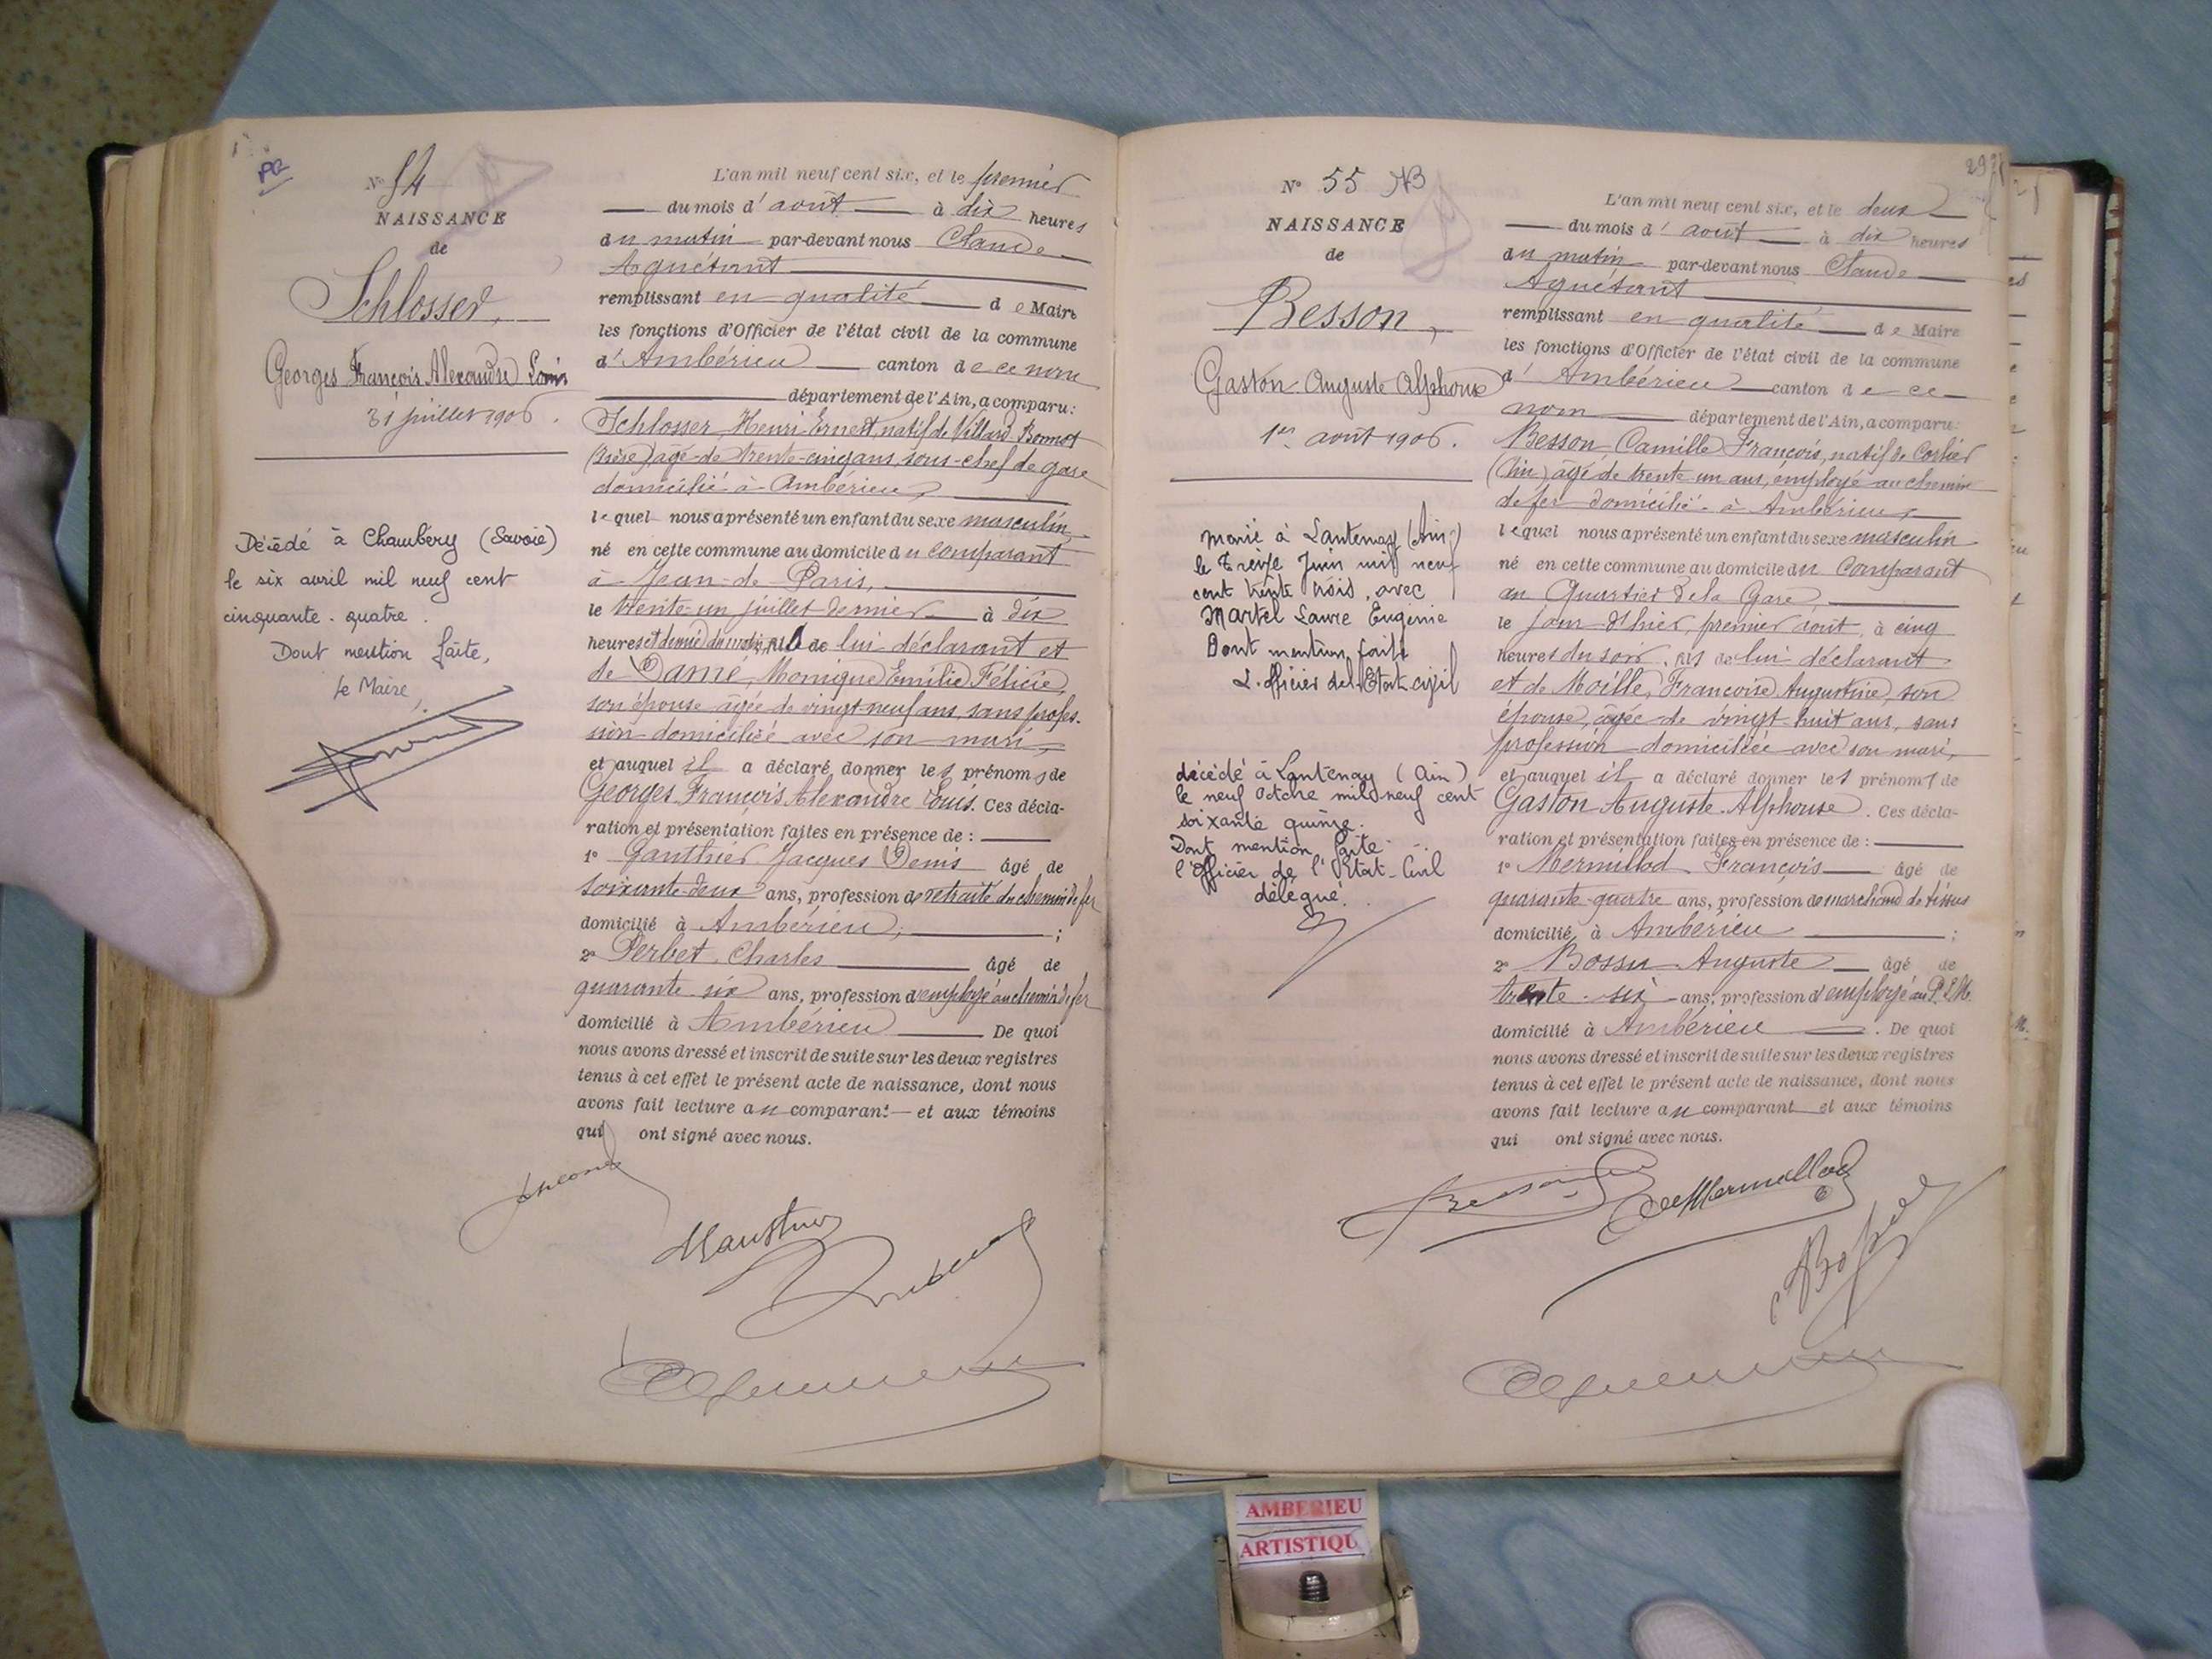 PR
N° 54
NAISSANCE
de
Schlosser,
Georges François Alexandre Louis
31 juillet 1906.
Décédé à Chambéry (Savoie)
le six avril mil neuf cent
cinquante-quatre.
Dont mention faite,
Le Maire,
L'an mil neuf cent six, et le premier
du mois d'août à dix heures
du matin par-devant nous Claude
Aguétant
remplissant en qualité de Maire
les fonctions d'Officier de l'état civil de la commune
d'Ambérieu canton de ce nom
département de l'Ain, a comparu:
Schlosser, Henri-Ernest, natif de Villard Bonnot
(Isère) âgé de trente-cinq ans, sous-chef de gare
domicilié à Ambérieu,
lequel nous a présenté un enfant du sexe masculin
né en cette commune au domicile du comparant
à Jean-de-Paris,
le trente-un juillet dernier à dix
heures et demie du matin, fils de lui déclarant et
de Damé, Monique Emilie Félicie,
son épouse âgée de vingt-neuf ans, sans profes-
sion domiciliée avec son mari,
et auquel il a déclaré donner les prénoms de
Georges François Alexandre Louis. Ces décla-
ration et présentation faites en présence de :
1° Gauthier Jacques Denis âgé de
soixante-deux ans, profession de retraité du chemin de fer
domicilié à Ambérieu, ;
2° Perbet, Charles âgé de
quarante-six ans, profession d'employé au chemin de fer
domicilié à Ambérieu De quoi
nous avons dressé et inscrit de suite sur les deux registres
tenus à cet effet le présent acte de naissance, dont nous
avons fait lecture au comparant et aux témoins
qui ont signé avec nous.
N° 55
NAISSANCE
de
Besson,
Gaston Auguste Alphonse
1er août 1906.
marié à Lantenay (Ain)
le treize Juin mil neuf
cent trente trois, avec
Martel Laure Eugénie
Dont mention faite
L'officier de l'Etat civil
décédé à Lantenay (Ain)
le neuf Octobre mil neuf cent
soixante quinze.
Dont mention faite
l'Officier de l'Etat-Civil
délégué.
L'an mil neuf cent six, et le deux
du mois d'août à dix heures
du matin par-devant nous Claude
Aguétant
remplissant en qualité de Maire
les fonctions d'Officier de l'état civil de la commune
d'Ambérieu canton de ce
nom département de l'Ain, a comparu:
Besson, Camille François, natif de Corlier
(Ain) âgé de trente un ans, employé au chemin
de fer domicilié à Ambérieu,
lequel nous a présenté un enfant du sexe masculin
né en cette commune au domicile du Comparant
au Quartier de la Gare,
le jour d'hier, premier août, à cinq
heures du soir, fils de lui déclarant
et de Moille, Françoise Augustine, son
épouse, âgée de vingt-huit ans, sans
profession domiciliée avec son mari,
et auquel il a déclaré donner les prénoms de
Gaston Auguste Alphonse. Ces décla-
ration et présentation faites en présence de :
1° Mermillod François âgé de
quarante-quatre ans, profession de marchand de tissus
domicilié à Ambérieu ;
2° Bossu Auguste âgé de
trente-six ans, profession d'employé au P.L.M.
domicilié à Ambérieu. De quoi
nous avons dressé et inscrit de suite sur les deux registres
tenus à cet effet le présent acte de naissance, dont nous
avons fait lecture au comparant et aux témoins
qui ont signé avec nous.
Besson
Mermillod
AMBERIEU
ARTISTIQU